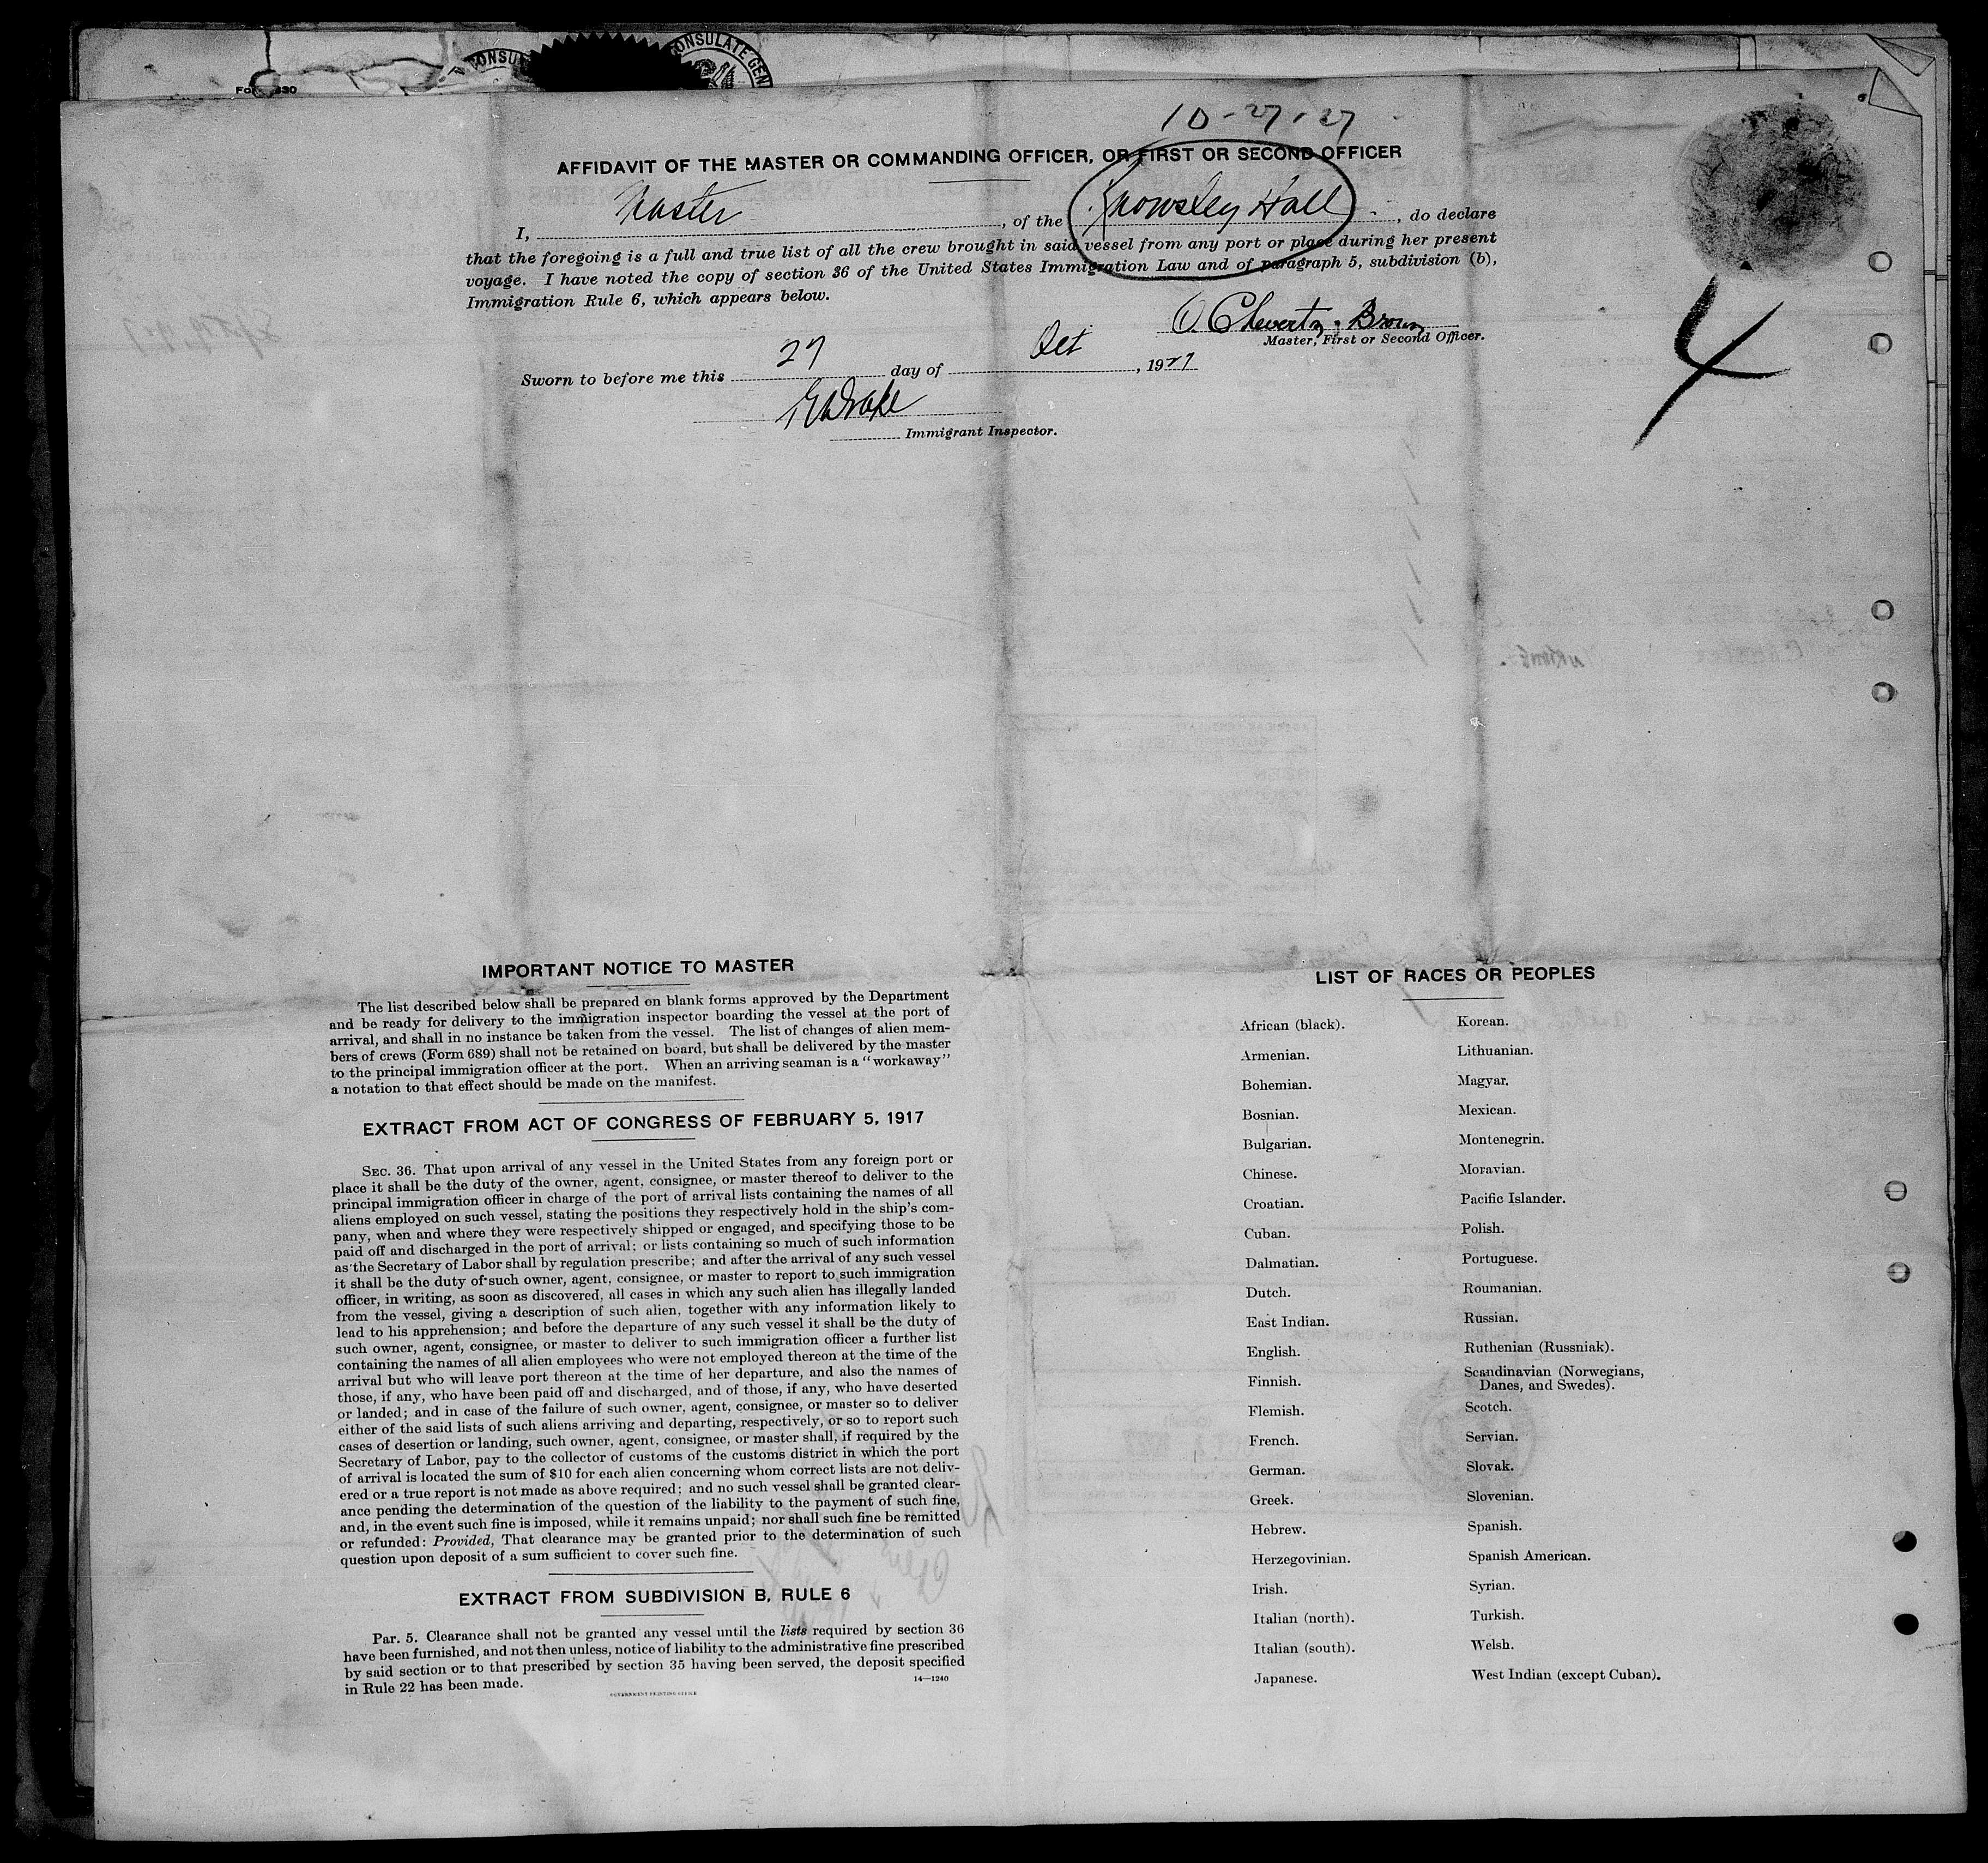 CONSU
CONSULATE GEN
10-27-27
AFFIDAVIT OF THE MASTER OR COMMANDING OFFICER, OR FIRST OR SECOND OFFICER
I, Master, of the Knowsley Hall, do declare
that the foregoing is a full and true list of all the crew brought in said vessel from any port or place during her present
voyage. I have noted the copy of section 36 of the United States Immigration Law and of paragraph 5, subdivision (b),
Immigration Rule 6, which appears below.
Brown
Master, First or Second Officer.
4
Sworn to before me this 27 day of Oct, 1927
Immigrant Inspector.
IMPORTANT NOTICE TO MASTER
The list described below shall be prepared on blank forms approved by the Department
and be ready for delivery to the immigration inspector boarding the vessel at the port of
arrival, and shall in no instance be taken from the vessel. The list of changes of alien mem-
bers of crews (Form 689) shall not be retained on board, but shall be delivered by the master
to the principal immigration officer at the port. When an arriving seaman is a "workaway"
a notation to that effect should be made on the manifest.
EXTRACT FROM ACT OF CONGRESS OF FEBRUARY 5, 1917
SEC. 36. That upon arrival of any vessel in the United States from any foreign port or
place it shall be the duty of the owner, agent, consignee, or master thereof to deliver to the
principal immigration officer in charge of the port of arrival lists containing the names of all
aliens employed on such vessel, stating the positions they respectively hold in the ship's com-
pany, when and where they were respectively shipped or engaged, and specifying those to be
paid off and discharged in the port of arrival; or lists containing so much of such information
as the Secretary of Labor shall by regulation prescribe; and after the arrival of any such vessel
it shall be the duty of such owner, agent, consignee, or master to report to such immigration
officer, in writing, as soon as discovered, all cases in which any such alien has illegally landed
from the vessel, giving a description of such alien, together with any information likely to
lead to his apprehension; and before the departure of any such vessel it shall be the duty of
such owner, agent, consignee, or master to deliver to such immigration officer a further list
containing the names of all alien employees who were not employed thereon at the time of the
arrival but who will leave port thereon at the time of her departure, and also the names of
those, if any, who have been paid off and discharged, and of those, if any, who have deserted
or landed; and in case of the failure of such owner, agent, consignee, or master so to deliver
either of the said lists of such aliens arriving and departing, respectively, or so to report such
cases of desertion or landing, such owner, agent, consignee, or master shall, if required by the
Secretary of Labor, pay to the collector of customs of the customs district in which the port
of arrival is located the sum of $10 for each alien concerning whom correct lists are not deliv-
ered or a true report is not made as above required; and no such vessel shall be granted clear-
ance pending the determination of the question of the liability to the payment of such fine,
and, in the event such fine is imposed, while it remains unpaid; nor shall such fine be remitted
or refunded: Provided, That clearance may be granted prior to the determination of such
question upon deposit of a sum sufficient to cover such fine.
EXTRACT FROM SUBDIVISION B, RULE 6
Par. 5. Clearance shall not be granted any vessel until the lists required by section 36
have been furnished, and not then unless, notice of liability to the administrative fine prescribed
by said section or to that prescribed by section 35 having been served, the deposit specified
in Rule 22 has been made.
14—1240
GOVERNMENT PRINTING OFFICE
LIST OF RACES OR PEOPLES
African (black).
Armenian.
Bohemian.
Bosnian.
Bulgarian.
Chinese.
Croatian.
Cuban.
Dalmatian.
Dutch.
East Indian.
English.
Finnish.
Flemish.
French.
German.
Greek.
Hebrew.
Herzegovinian.
Irish.
Italian (north).
Italian (south).
Japanese.
Korean.
Lithuanian.
Magyar.
Mexican.
Montenegrin.
Moravian.
Pacific Islander.
Polish.
Portuguese.
Roumanian.
Russian.
Ruthenian (Russniak).
Scandinavian (Norwegians,
Danes, and Swedes).
Scotch.
Servian.
Slovak.
Slovenian.
Spanish.
Spanish American.
Syrian.
Turkish.
Welsh.
West Indian (except Cuban).